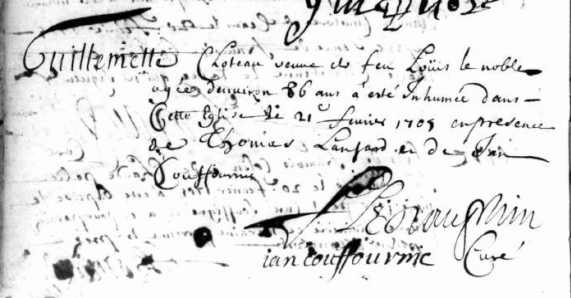 Guillemette Choteau veuve de feu Louis le noble
agée denviron 86 ans a esté Inhumée dans
Cette Eglise le 21e fevrier 1705 en presence
de Thomas Lanfard et de Jan
Couffournic
ian couffournic Curé